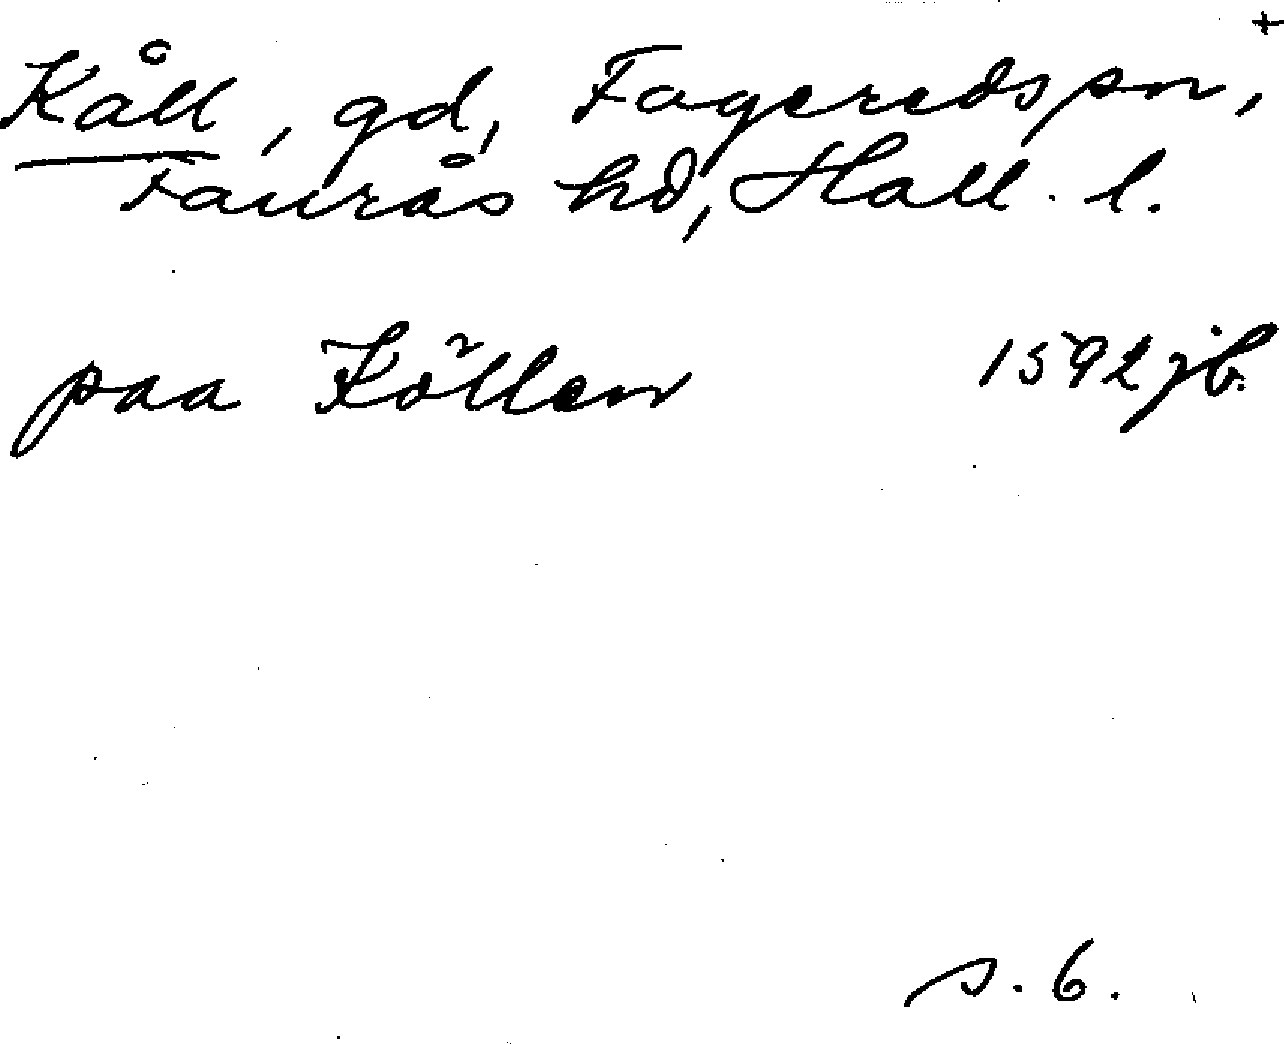 +
Kåll, gd, Fageredspn,
Faurås hd, Hall. l.
paa Köllen 1592 jb.
s. 6.